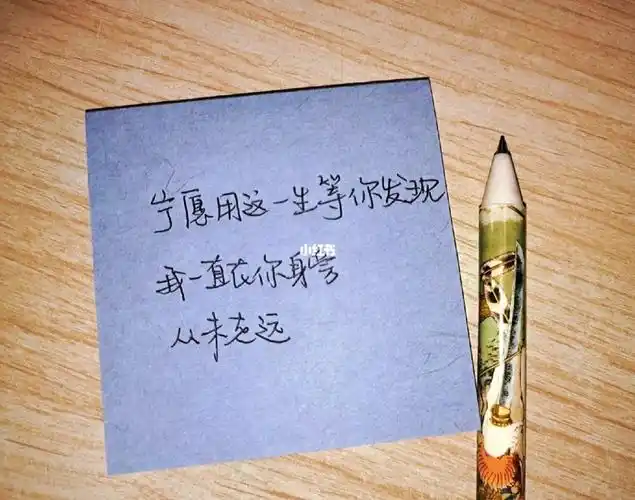 宁愿用这一生等你发现
我一直在你身旁
从未走远
小红书